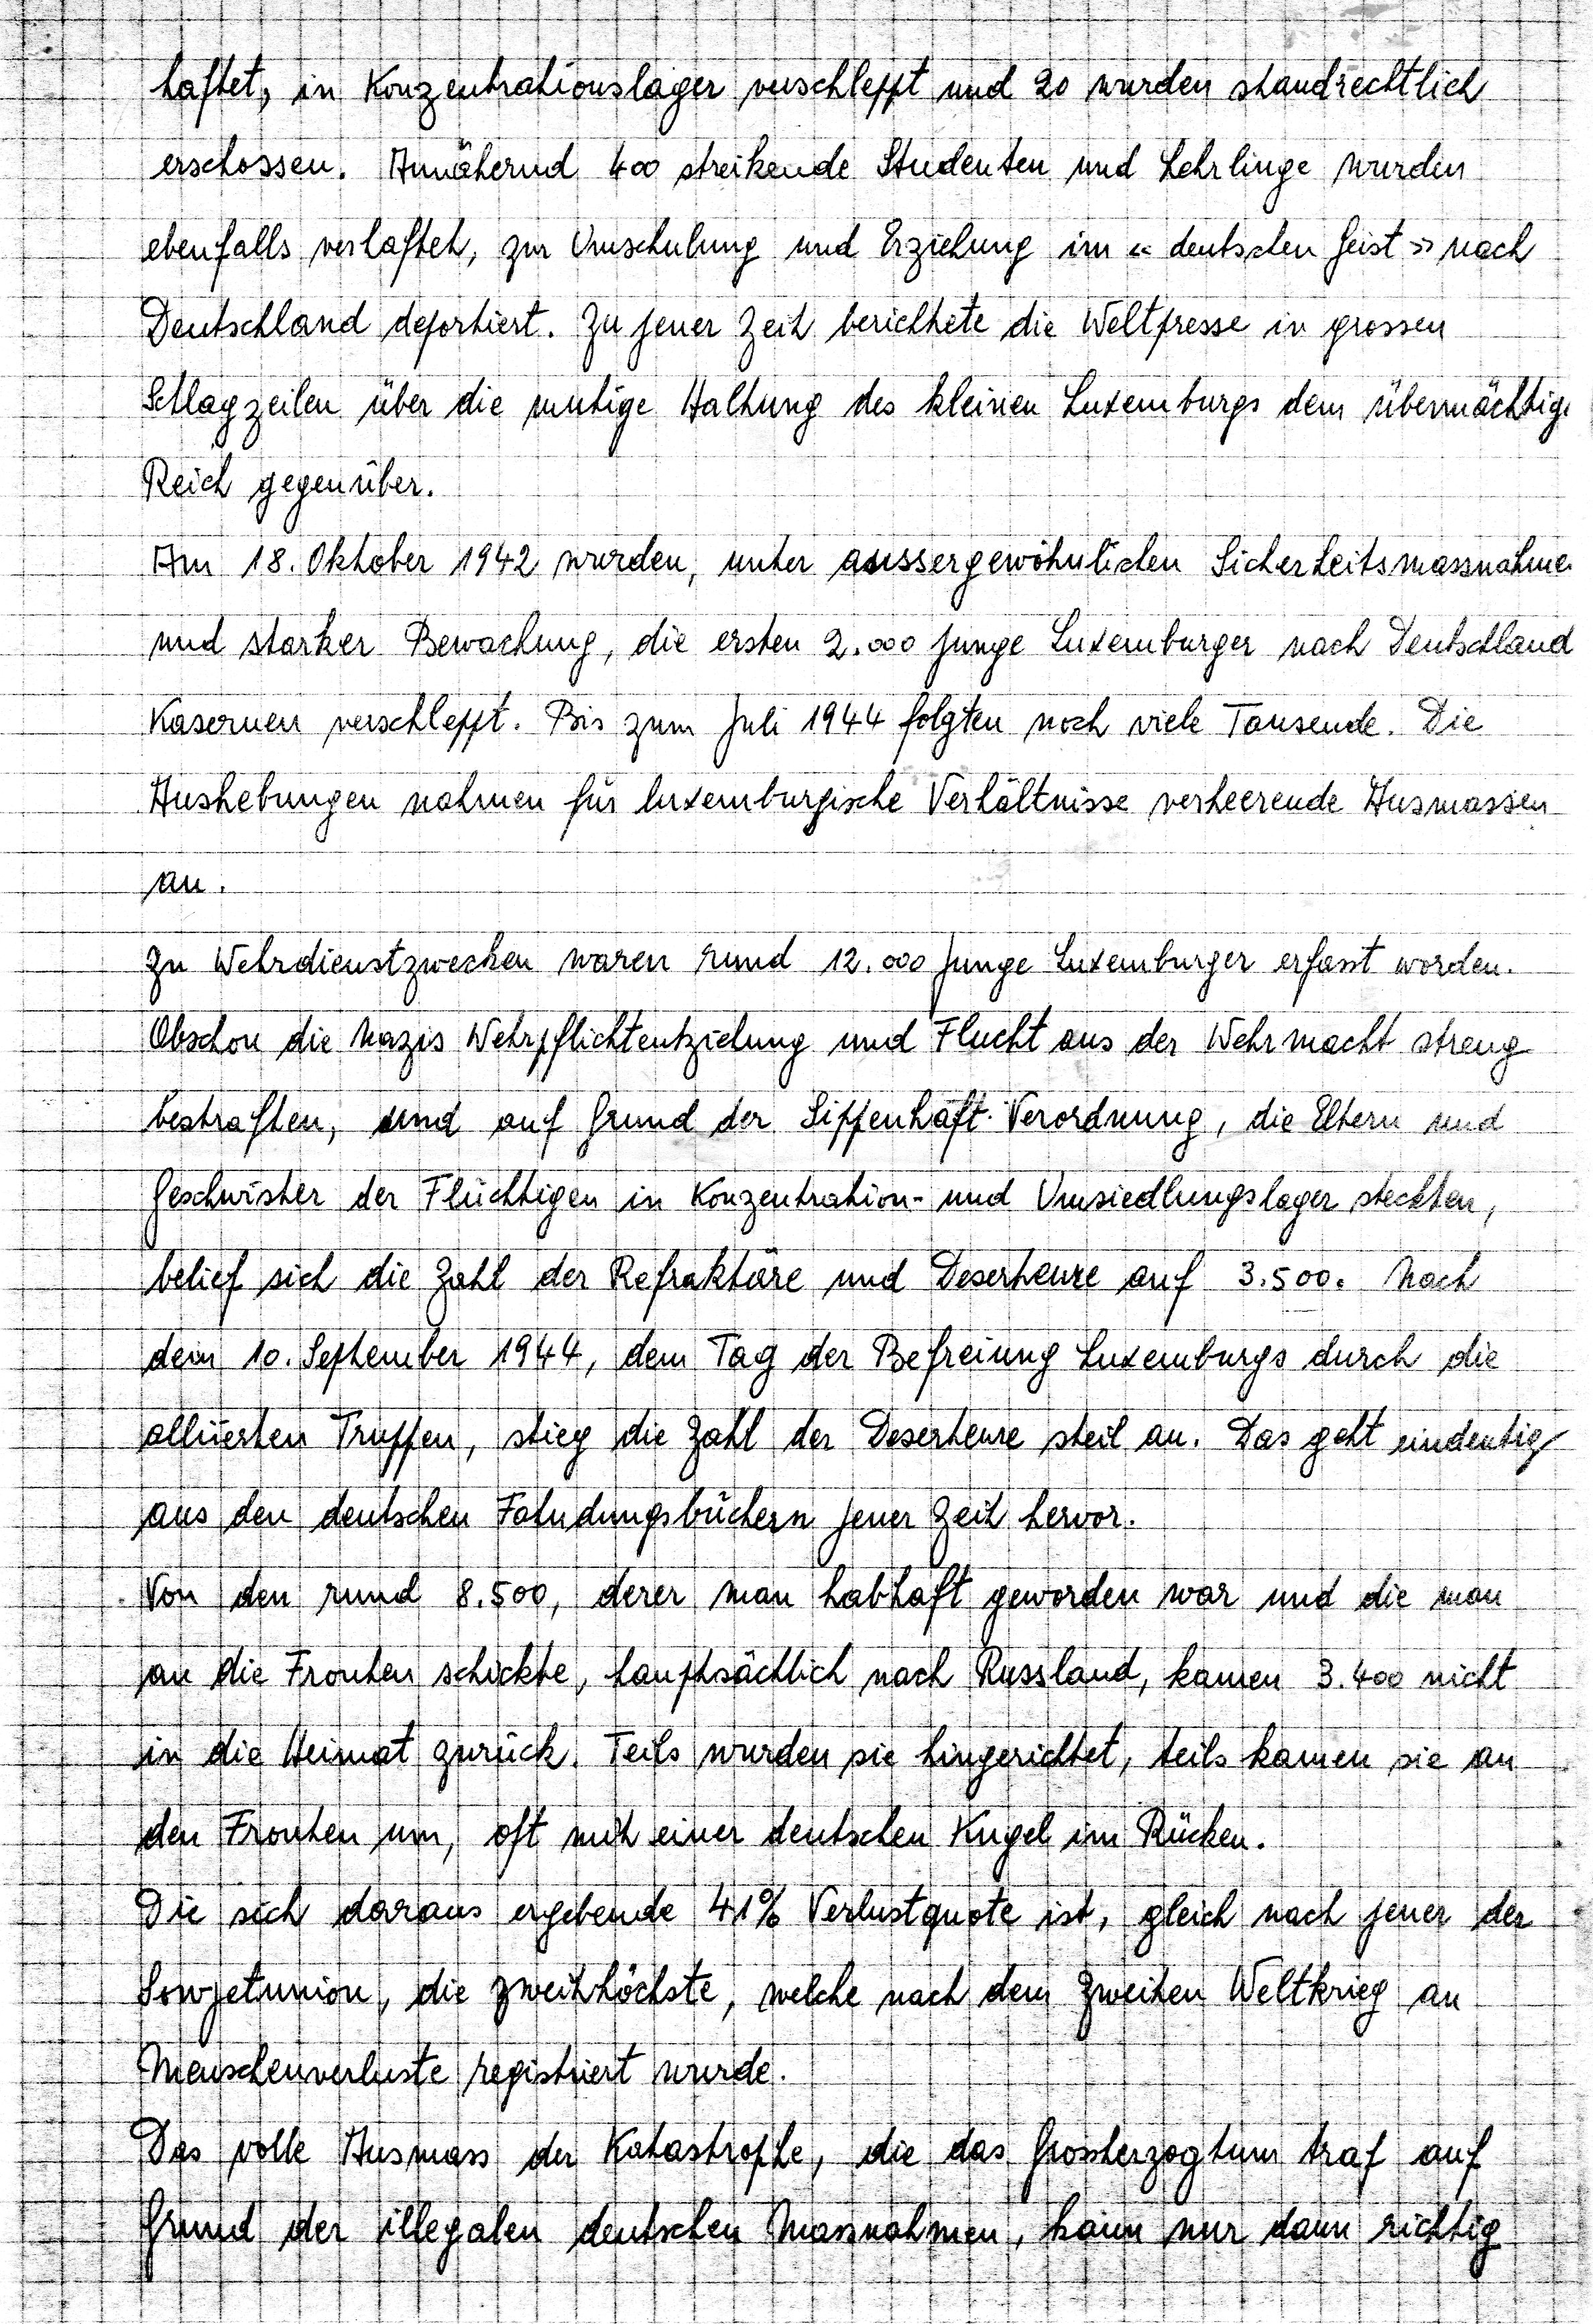 haftet, in Konzentrationslager verschleppt und 20 wurden standrechtlich
erschossen. Annähernd 400 streikende Studenten und Lehrlinge wurden
ebenfalls verhaftet, zur Umschulung und Erziehung im « deutschen Geist » nach
Deutschland deportiert. Zu jener Zeit berichtete die Weltpresse in grossen
Schlagzeilen über die mutige Haltung des kleinen Luxemburgs dem übermächtige
Reich gegenüber.
Am 18. Oktober 1942 wurden, unter aussergewöhnlichen Sicherheitsmassnahme
und starker Bewachung, die ersten 2.000 junge Luxemburger nach Deutschland
Kasernen verschleppt. Bis zum Juli 1944 folgten noch viele Tausende. Die
Aushebungen nahmen für luxemburgische Verhältnisse verheerende Ausmassen
an.
Zu Wehrdienstzwecken waren rund 12.000 junge Luxemburger erfasst worden.
Obschon die Nazis Wehrpflichtentziehung und Flucht aus der Wehrmacht streng
bestraften, und auf Grund der Sippenhaft-Verordnung, die Eltern und
Geschwister der Flüchtigen in Konzentration- und Umsiedlungslager steckten,
belief sich die Zahl der Refraktäre und Deserteure auf 3.500. Nach
dem 10. September 1944, dem Tag der Befreiung Luxemburgs durch die
alliierten Truppen, stieg die Zahl der Deserteure steil an. Das geht eindeutig
aus den deutschen Fahndungsbüchern jener Zeit hervor.
Von den rund 8.500, derer man habhaft geworden war und die man
an die Fronten schickte, hauptsächlich nach Russland, kamen 3.400 nicht
in die Heimat zurück. Teils wurden sie hingerichtet, teils kamen sie an
den Fronten um, oft mit einer deutschen Kugel im Rücken.
Die sich daraus ergebende 41% Verlustquote ist, gleich nach jener der
Sowjetunion, die zweithöchste, welche nach dem zweiten Weltkrieg an
Menschenverluste registriert wurde.
Das volle Ausmass der Katastrophe, die das Grossherzogtum traf auf
Grund der illegalen deutschen Massnahmen, kann nur dann richtig